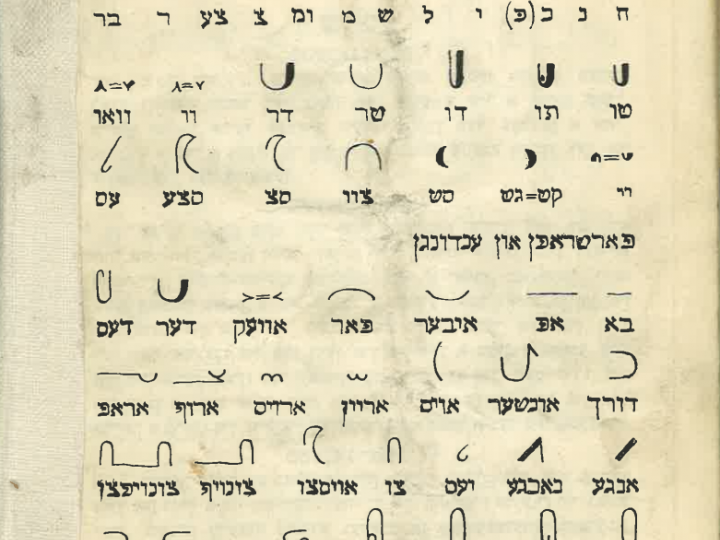 ח נ כ (פ) י ל ש מ ומ צ צע ר בר
טו תו דו טר דר וו וואו
יי קט=גט סט צוו סצ סצע עס
פארטראפן און ענדונגן
בא אפ איבער פאר אוועק דער דעס
דורך אונטער אויס אריין ארויס ארופ אראפ
אנגע נאכגע ועס צו אויסצו צונויפ צונויפצו